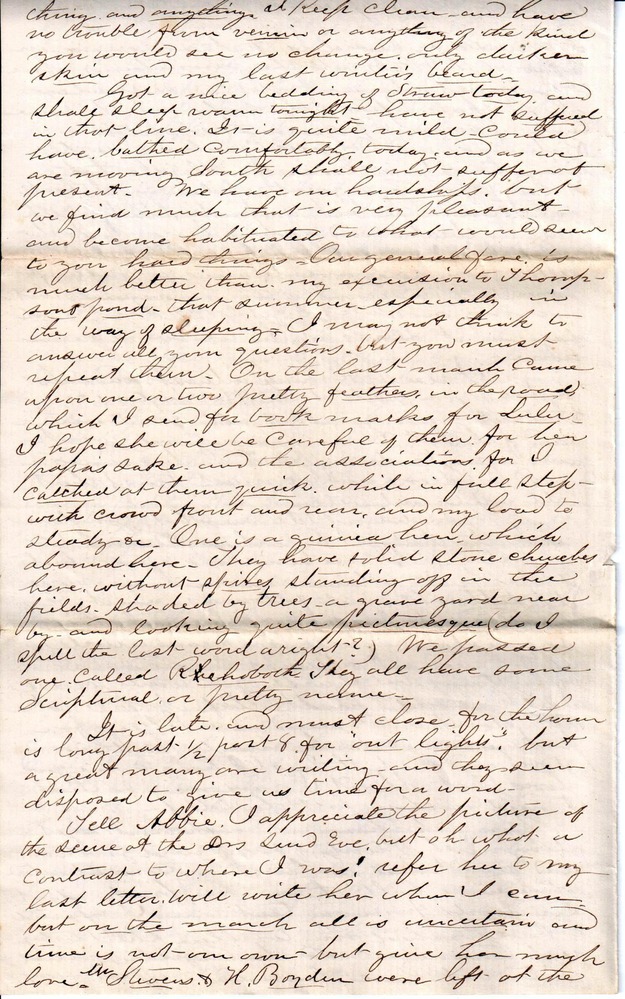 thing and anything. I keep clean and have
no trouble from vermin or anything of the kind
you would see no change. only darker
skin and my last winters beard.
Got a nice bedding of straw today. and
shall sleep warm tonight - have not suffered
in that line. It is quite mild - could
have. bathed comfortably. today. and as we
are moving South shall not suffer at
present. We have our hardships. but
we find much that is very pleasant -
and become habituated to what would seem
to you hard things - Our general fare. is
much better than. my excursion to Thomp-
sons pond - that summer - especially in
the way of sleeping. I may not think to
answer all your questions. but you must
repeat them - On the last march came
upon one or two pretty feathers, in the road,
which I send for book marks for Lulu -
I hope she will be careful of them. for her
papas sake. and the associations. for I
catched at them quick. while in full step -
with crowd front and rear, and my load to
steady &c. One is a guinea hen. which
abound here - They have solid stone churches
here. without spires, standing off in the
fields. shaded by trees. a grave yard near
by - and looking quite picturesque (do I
spell the last word aright?) We passed
one called Rehoboth They all have some
Scriptural. or pretty name -
It is late. and must close. for the hour
is long past 1/2 past 8 for "out lights". but
a great many are writing - and they seem
disposed to give us time for a word -
Tell Abbie. I appreciate the picture of
the scene at the Drs Sund Eve, but oh what a
contrast to where I was! refer her to my
last letter. will write her when I can -
but on the march all is uncertain and
time is not our own - but give her much
love. Stevens & H. Boyden were left at the